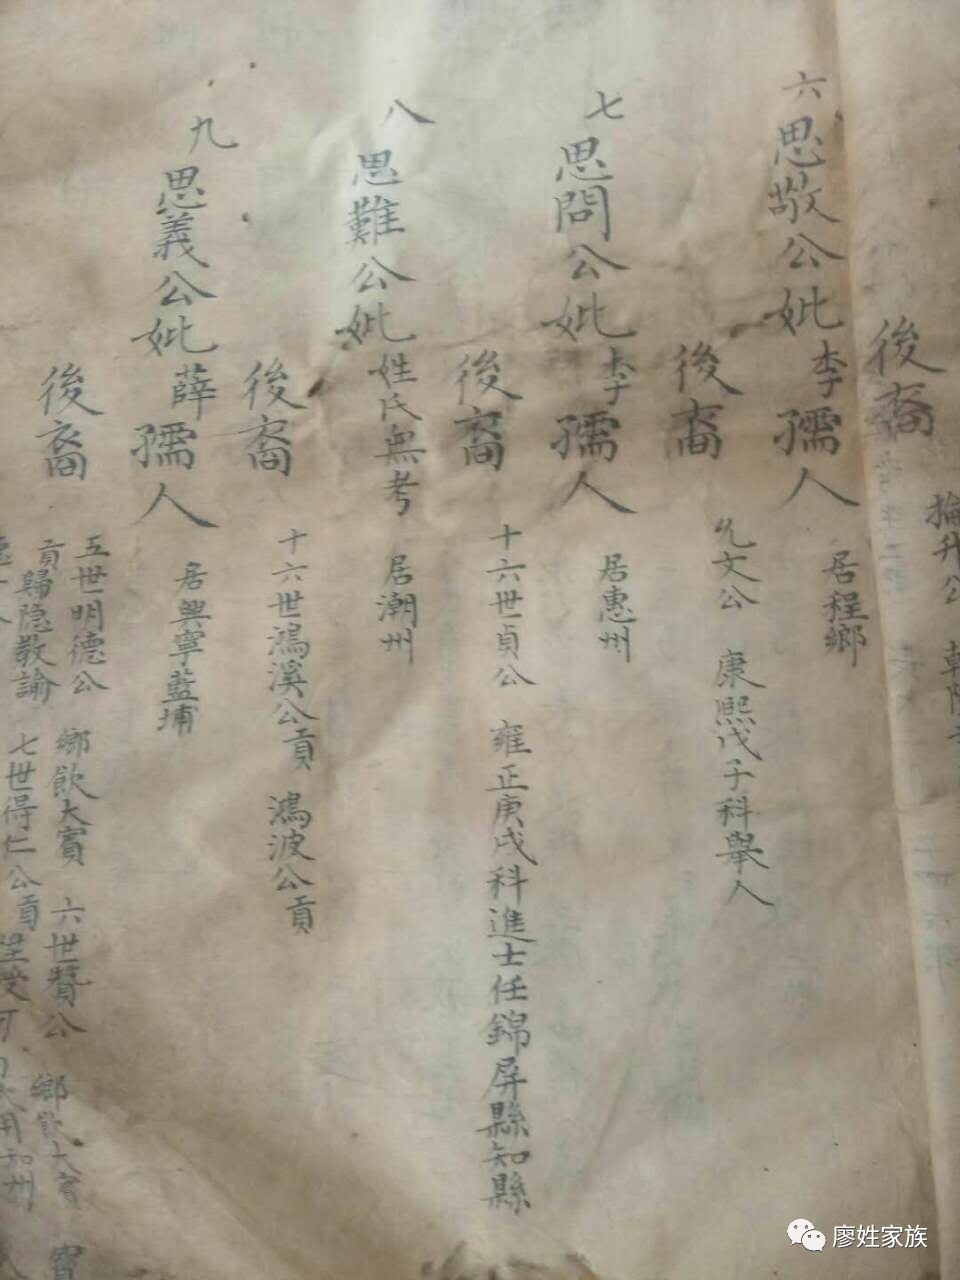 後裔
掄升公
六思敬公妣李孺人 居程鄉
後裔 允文公 康熙戊子科舉人
七思問公妣李孺人 居惠州
後裔 十六世貞公 雍正庚戌科進士任錦屏縣知縣
八思難公妣姓氏無考 居潮州
後裔 十六世鴻溪公貢 鴻波公貢
九思義公妣薛孺人 居興寧藍埔
後裔
五世明德公 鄉飲大賓 六世贊公 鄉飲大賓
貢歸隐教諭 七世得仁公貢
廖姓家族